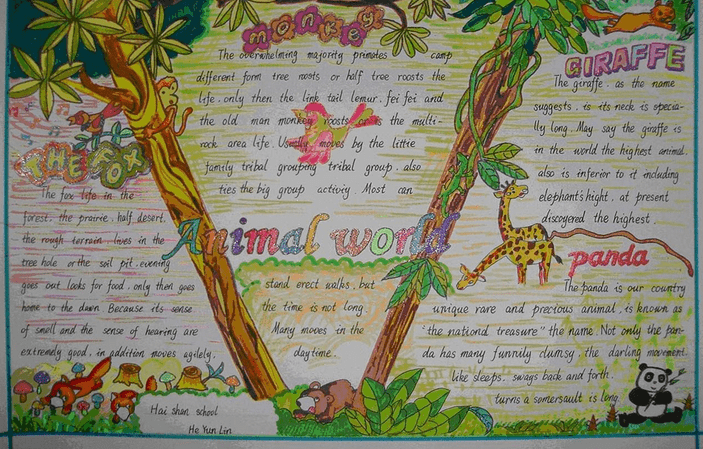 monkey
The overwhelming majority primates camp
different form tree roosts or half tree roosts the
life. only then the link tail lemur. fei fei and
the old man monkey roosts or is the multi-
rock area life. Usually moves by the little
family tribal grouping tribal group. also
ties the big group activiy. Most can
stand erect walks. but
the time is not long.
Many moves in the
daytime.
Animal world
THE FOX
The fox life in the
forest. the prairie. half desert.
the rough terrain. lives in the
tree hole or the soil pit. evening
goes out looks for food. only then goes
home to the dawn Because its sense
of smell and the sense of hearing are
extremely good. in addition moves agilely.
GIRAFFE
The giraffe. as the name
suggests. is its neck is specia-
lly long. May say the giraffe is
in the world the highest animal.
also is inferior to it including
elephant's hight. at present
discovered the highest.
panda
The panda is our country
unique rare and precious animal. is known as
"the national treasure" the name. Not only the pan-
da has many funnily clumsy. the darling movement.
like sleeps. sways back and forth.
turns a somersault is long.
Hai shan school
He Yun Lin